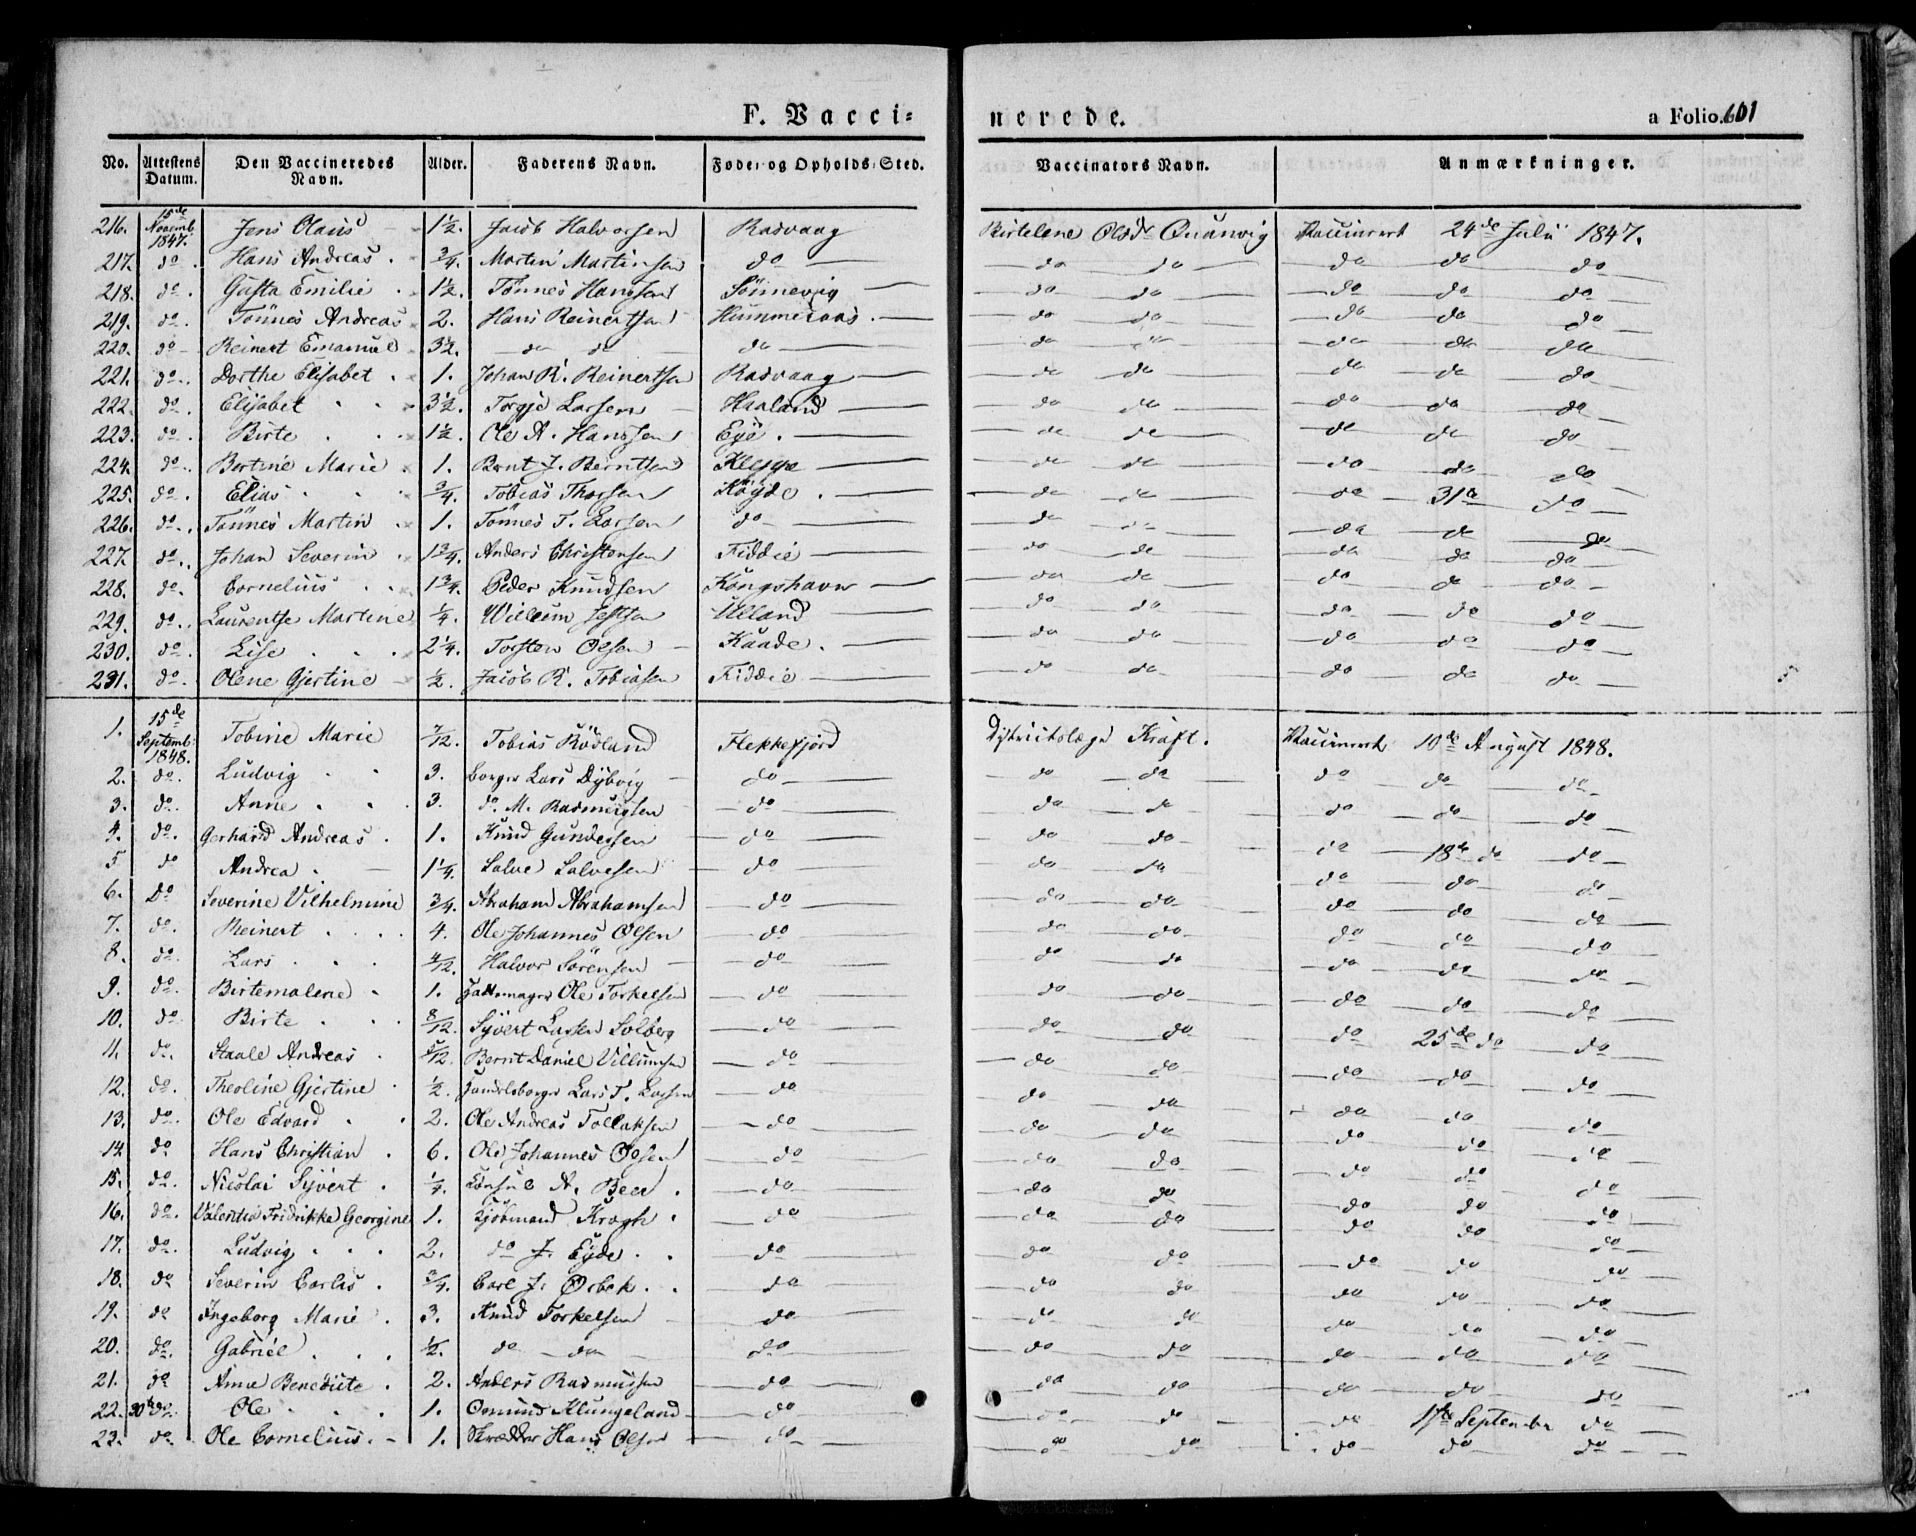 F. Vacci=nerede. a Folio 601
No. Attestens Datum. Den Vaccineredes Navn. Alder. Faderens Navn. Føde- og Opholds-Sted. Vaccinators Navn. Anmærkninger.
216. 15de Novemb. 1847. Jens Olaus 1½. Jacob Halvorsen Rasvaag Birtelene Olsdr Quanvig Vaccineret 24de Juli 1847.
217. do. Hans Andreas. ¾. Martin Martinsen do do do do do do
218. do. Gusta Emilie 1½. Tönnes Hanssen Sönnevig do do do do do
219. do. Tönnes Andreas 2. Hans Reinertsen Hummeraas. do do do do do
220. do Reinert Emanuel 3½. do do do do do do do do
221. do. Dorthe Elisabet. 1. Johan R. Reinertsen Rasvaag do do do do do
222. do. Elisabet 3½. Torgje Larsen Haaland do do do do do
223. do. Birte 1½. Ole A. Hanssen Eye. do do do do do
224. do. Bertine Marie. 1. Bernt J. Berntsen do do do do do
225. do. Elias ¾. Tobias Thorsen Köyde. do do do 31te do
226. do. Tönnes Martin 1. Tönnes T. Larsen do do do do do do
227. do. Johan Severin 1¾. Anders Christensen Fiddie do do do do do
228. do. Cornelius 1¾. Peder Knudsen Kongshavn do do do do do
229. do. Laurentse Martine ¼. Willum Ulland do do do do do
230. do. Lise 2¼. Torsten Olsen Kaade. do do do do do
231. do. Olene Gjertine ½. Jacob R. Tobiasen Fiddie do do do do do
1. 15de Septemb. 1848. Tobine Marie 7/12. Tobias Rödland Flekkefjord Districtslæge Kraft. Vaccineret 10de August 1848.
2. do. Ludvig 3. Borger Lars Dybvig do do do do do do
3. do. Anne 3. do. M. Rasmussen do do do do do do
4. do. Gerhard Andreas. 1. Knud Gundersen do do do do do do
5 do Andrea. 1¼. Salve Salvesen do do do do 18de do do
6. Do Severine Vilhelmine ¾. Abraham Abrahamsen do do do do do do
7. do. Reinert 4. Ole Johannes Olsen do do do do do do
8. do. Lars 4/12. Halvor Sörensen do do do do do do
9. do. Birtemalene 1. Hattemager Ole Torkelsen do do do do do do
10. do. Birte 8/12. Syvert Larsen Solberg do do do do 25de do do
11. do. Staale Andreas 5/12. Bernt Daniel Villumsen do do do do do do
12. do. Theoline Gjertine ½. Handelsborger Lars T. Larsen do do do do do do
13. do. Ole Edvard 2. Ole Andreas Tollaksen do do do do do do
14. do Hans Christian 6. Ole Johannes Olsen do do do do do do
15. do. Nicolai Syvert. ¼. Consul A. Beer. do do do do do do
16. do. Valentia Fridrikke Georgine 1. Kjöbmand Krogh. do do do do do do
17. do. Ludvig 2. do J. Eyde. do do do do do do
18. do Severin Carlas. ¾. Carl J. Örbek. do do do do do do
19. do Ingeborg Marie. 3. Knud Torkelsen do do do do do do
20. do. Gabriel ½. do do do do do do do do
21. do Anne Benedicte. 2. Anders Rasmussen do do do do do do
22. 30te do. Ole 1. Omund Klungeland do do do do 1ste September do
23. do. Ole Cornelius. 1. Skrædder Hans Olsen do do do do do do